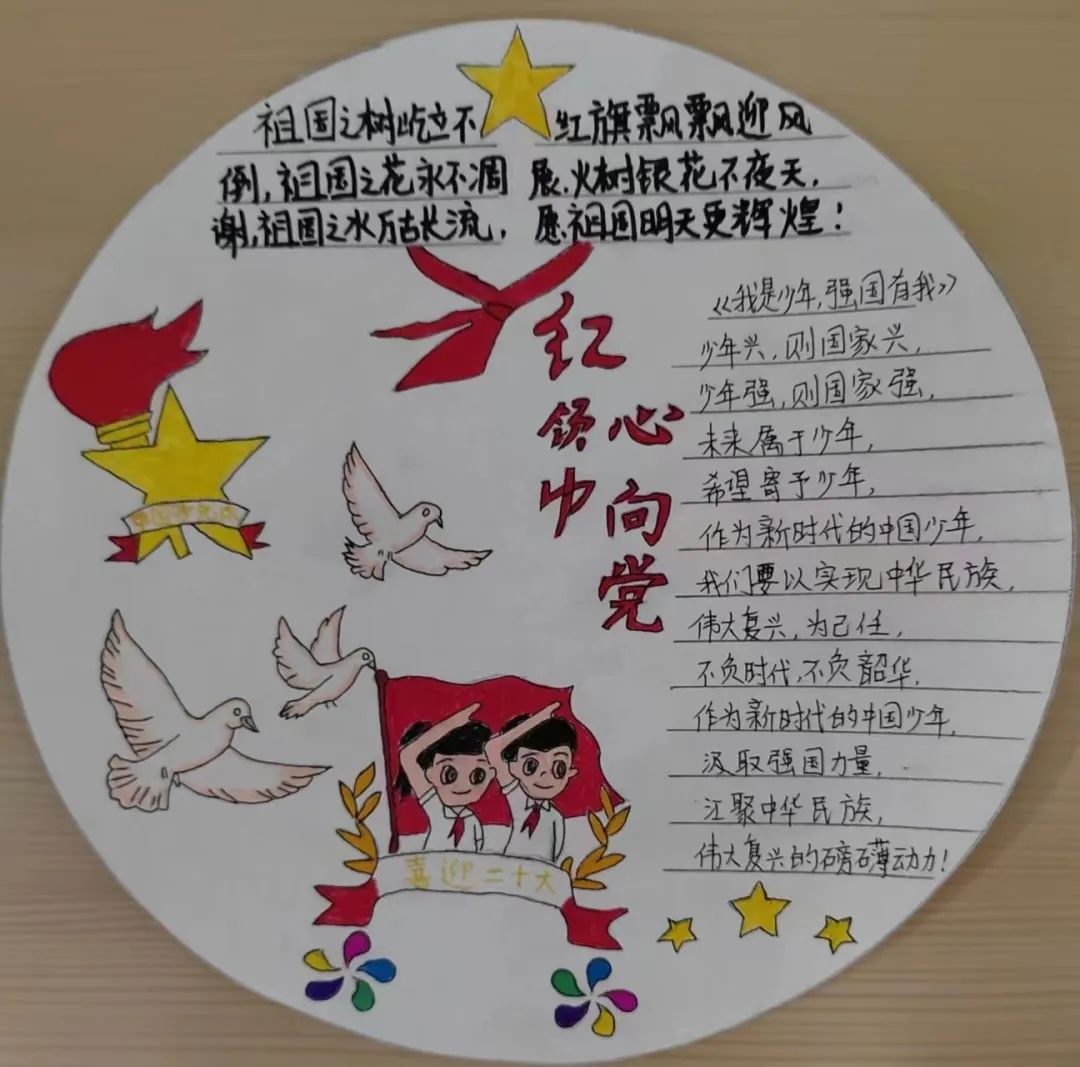 祖国之树屹立不
倒,祖国之花永不凋
谢,祖国之水万古长流,
红旗飘飘迎风
展.火树银花不夜天,
愿祖国明天更辉煌!
红领巾
心向党
《我是少年,强国有我》
少年兴,则国家兴,
少年强,则国家强,
未来属于少年,
希望寄予少年,
作为新时代的中国少年,
我们要以实现中华民族,
伟大复兴,为己任,
不负时代,不负韶华,
作为新时代的中国少年,
汲取强国力量,
江聚中华民族,
伟大复兴的磅礴动力!
中国少先队
喜迎二十大